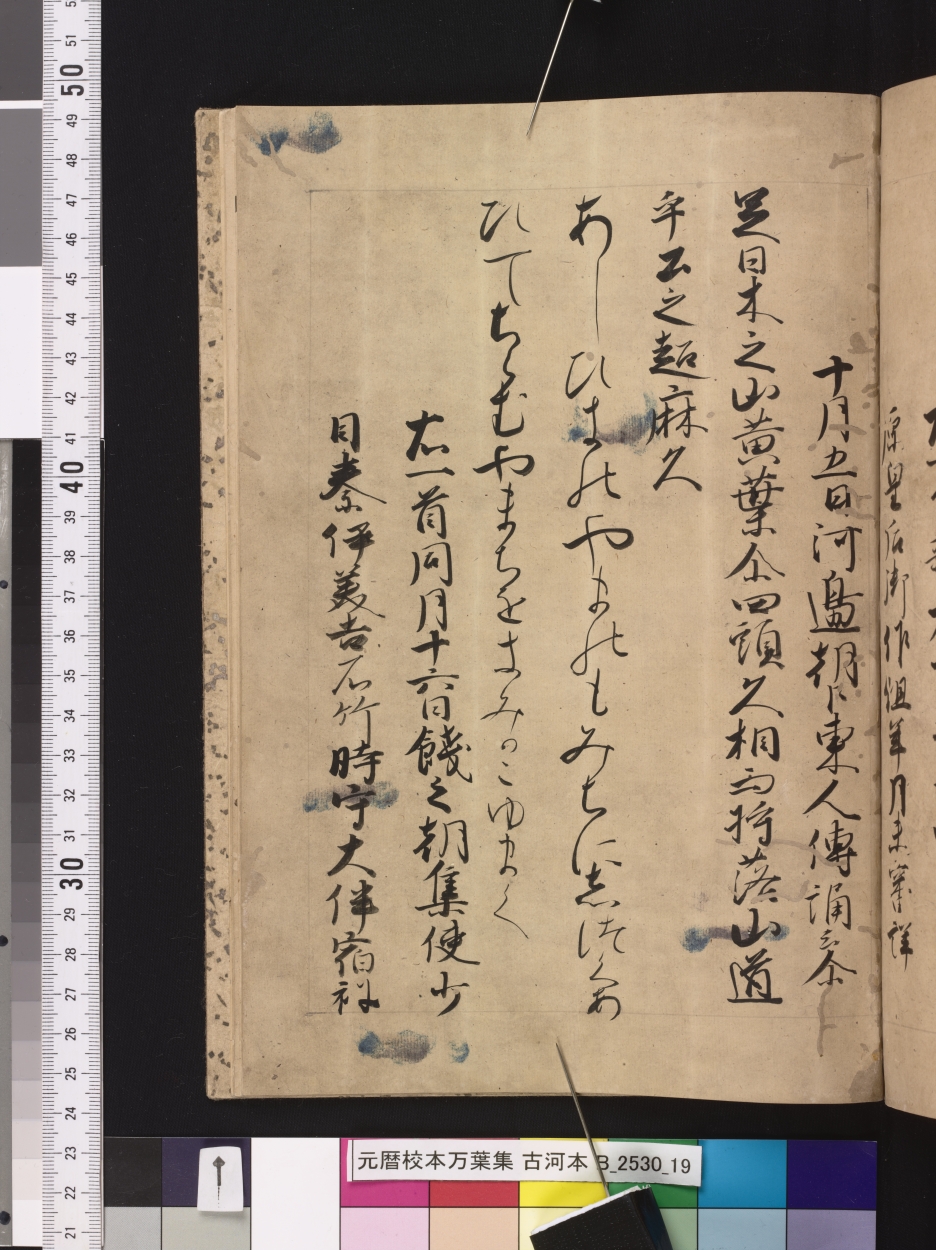 原皇后御作但年月未審詳
十月五日河邊朝臣東人傳誦云尓
足日木之山黄葉尓四頭久相而将落山道
乎公之超麻久
あしひきのやまのもみちにしつくあ
ひてちらむやまちをきみかこゆまく
右一首同月十六日餞之朝集使少
目秦伊美吉石竹時守大伴宿祢
元暦校本万葉集 古河本 B_2530_19
51
50
49
48
47
46
45
44
43
42
41
40
39
38
37
36
35
34
33
32
31
30
29
28
27
26
25
24
23
22
21